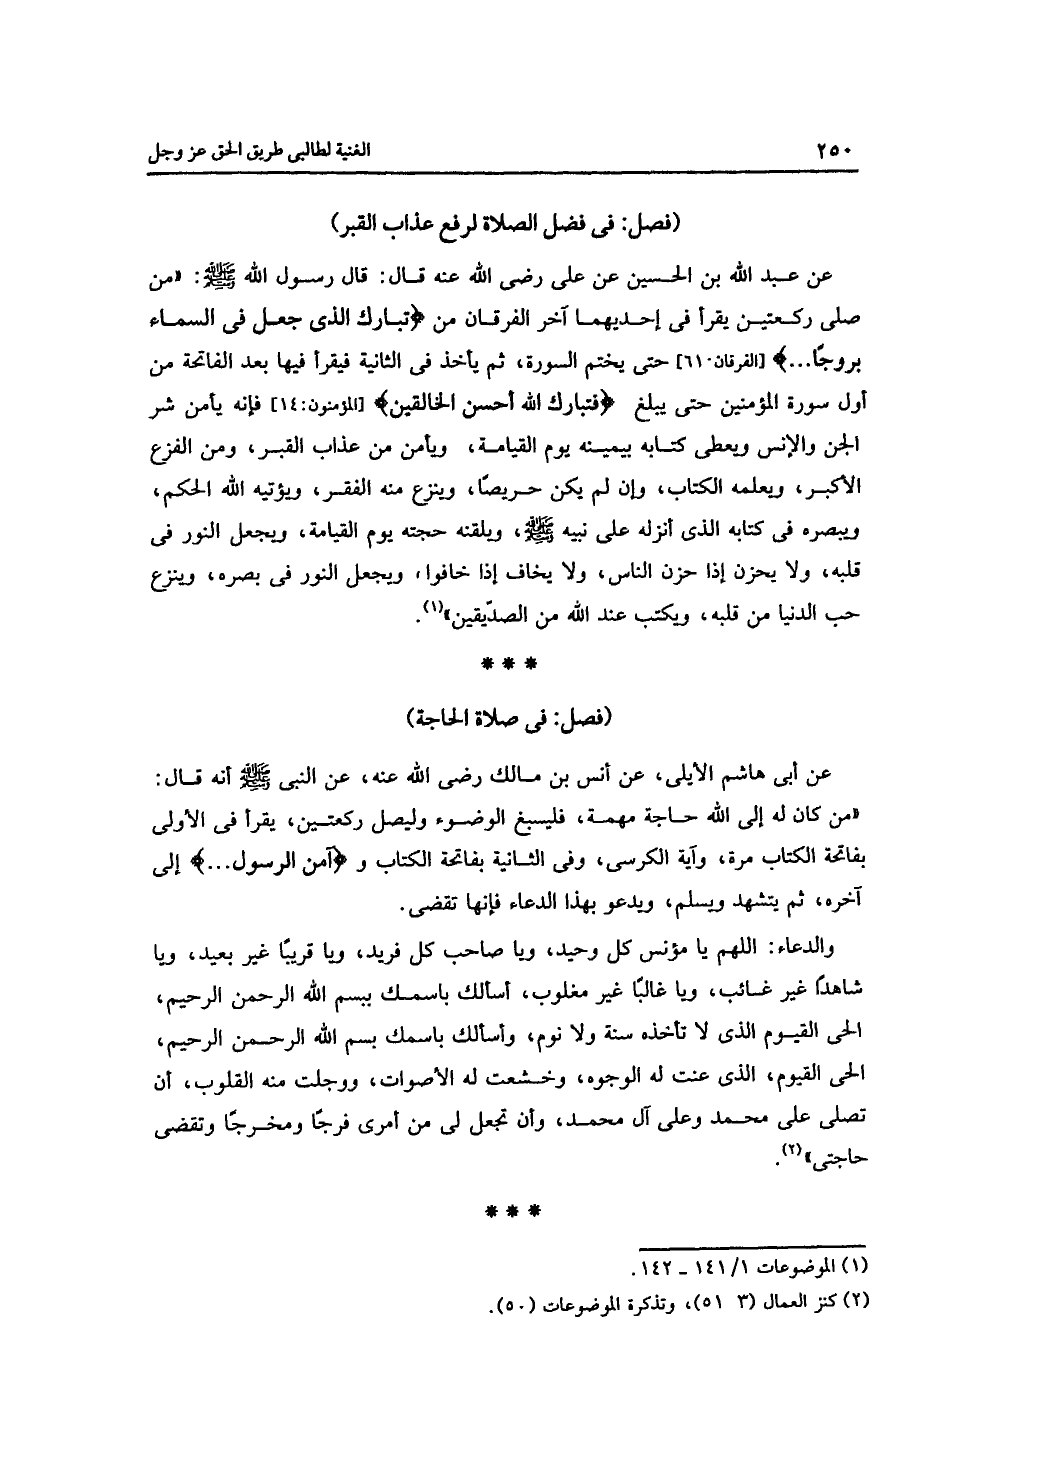 ٢٥٠ الغنية لطالبى طريق الحق عز وجل
(فصل: فى فضل الصلاة لرفع عذاب القبر)
عن عبد الله بن الحسين عن على رضى الله عنه قال: قال رسول الله ﷺ: «من
صلى ركعتين يقرأ فى إحديهما آخر الفرقان من ﴿تبارك الذى جعل فى السماء
بروجًا...﴾ [الفرقان: ٦١] حتى يختم السورة، ثم يأخذ فى الثانية فيقرأ فيها بعد الفاتحة من
أول سورة المؤمنين حتى يبلغ ﴿فتبارك الله أحسن الخالقين﴾ [المؤمنون: ١٤] فإنه يأمن شر
الجن والإنس ويعطى كتابه بيمينه يوم القيامة، ويأمن من عذاب القبر، ومن الفزع
الأكبر، ويعلمه الكتاب، وإن لم يكن حريصًا، وينزع منه الفقر، ويؤتيه الله الحكم،
ويبصره فى كتابه الذى أنزله على نبيه ﷺ، ويلقنه حجته يوم القيامة، ويجعل النور فى
قلبه، ولا يحزن إذا حزن الناس، ولا يخاف إذا خافوا، ويجعل النور فى بصره، وينزع
حب الدنيا من قلبه، ويكتب عند الله من الصدّيقين»(١).
* * *
(فصل: فى صلاة الحاجة)
عن أبى هاشم الأيلى، عن أنس بن مالك رضى الله عنه، عن النبى ﷺ أنه قال:
«من كان له إلى الله حاجة مهمة، فليسبغ الوضوء وليصل ركعتين، يقرأ فى الأولى
بفاتحة الكتاب مرة، وآية الكرسى، وفى الثانية بفاتحة الكتاب و ﴿آمن الرسول...﴾ إلى
آخره، ثم يتشهد ويسلم، ويدعو بهذا الدعاء فإنها تقضى.
والدعاء: اللهم يا مؤنس كل وحيد، ويا صاحب كل فريد، ويا قريبًا غير بعيد، ويا
شاهدًا غير غائب، ويا غالبًا غير مغلوب، أسألك باسمك ببسم الله الرحمن الرحيم،
الحى القيوم الذى لا تأخذه سنة ولا نوم، وأسألك باسمك بسم الله الرحمن الرحيم،
الحى القيوم، الذى عنت له الوجوه، وخشعت له الأصوات، ووجلت منه القلوب، أن
تصلى على محمد وعلى آل محمد، وأن تجعل لى من أمرى فرجًا ومخرجًا وتقضى
حاجتى»(٢).
* * *
(١) الموضوعات ١/ ١٤١ ـ ١٤٢.
(٢) كنز العمال (٣ ٥١)، وتذكرة الموضوعات (٥٠).